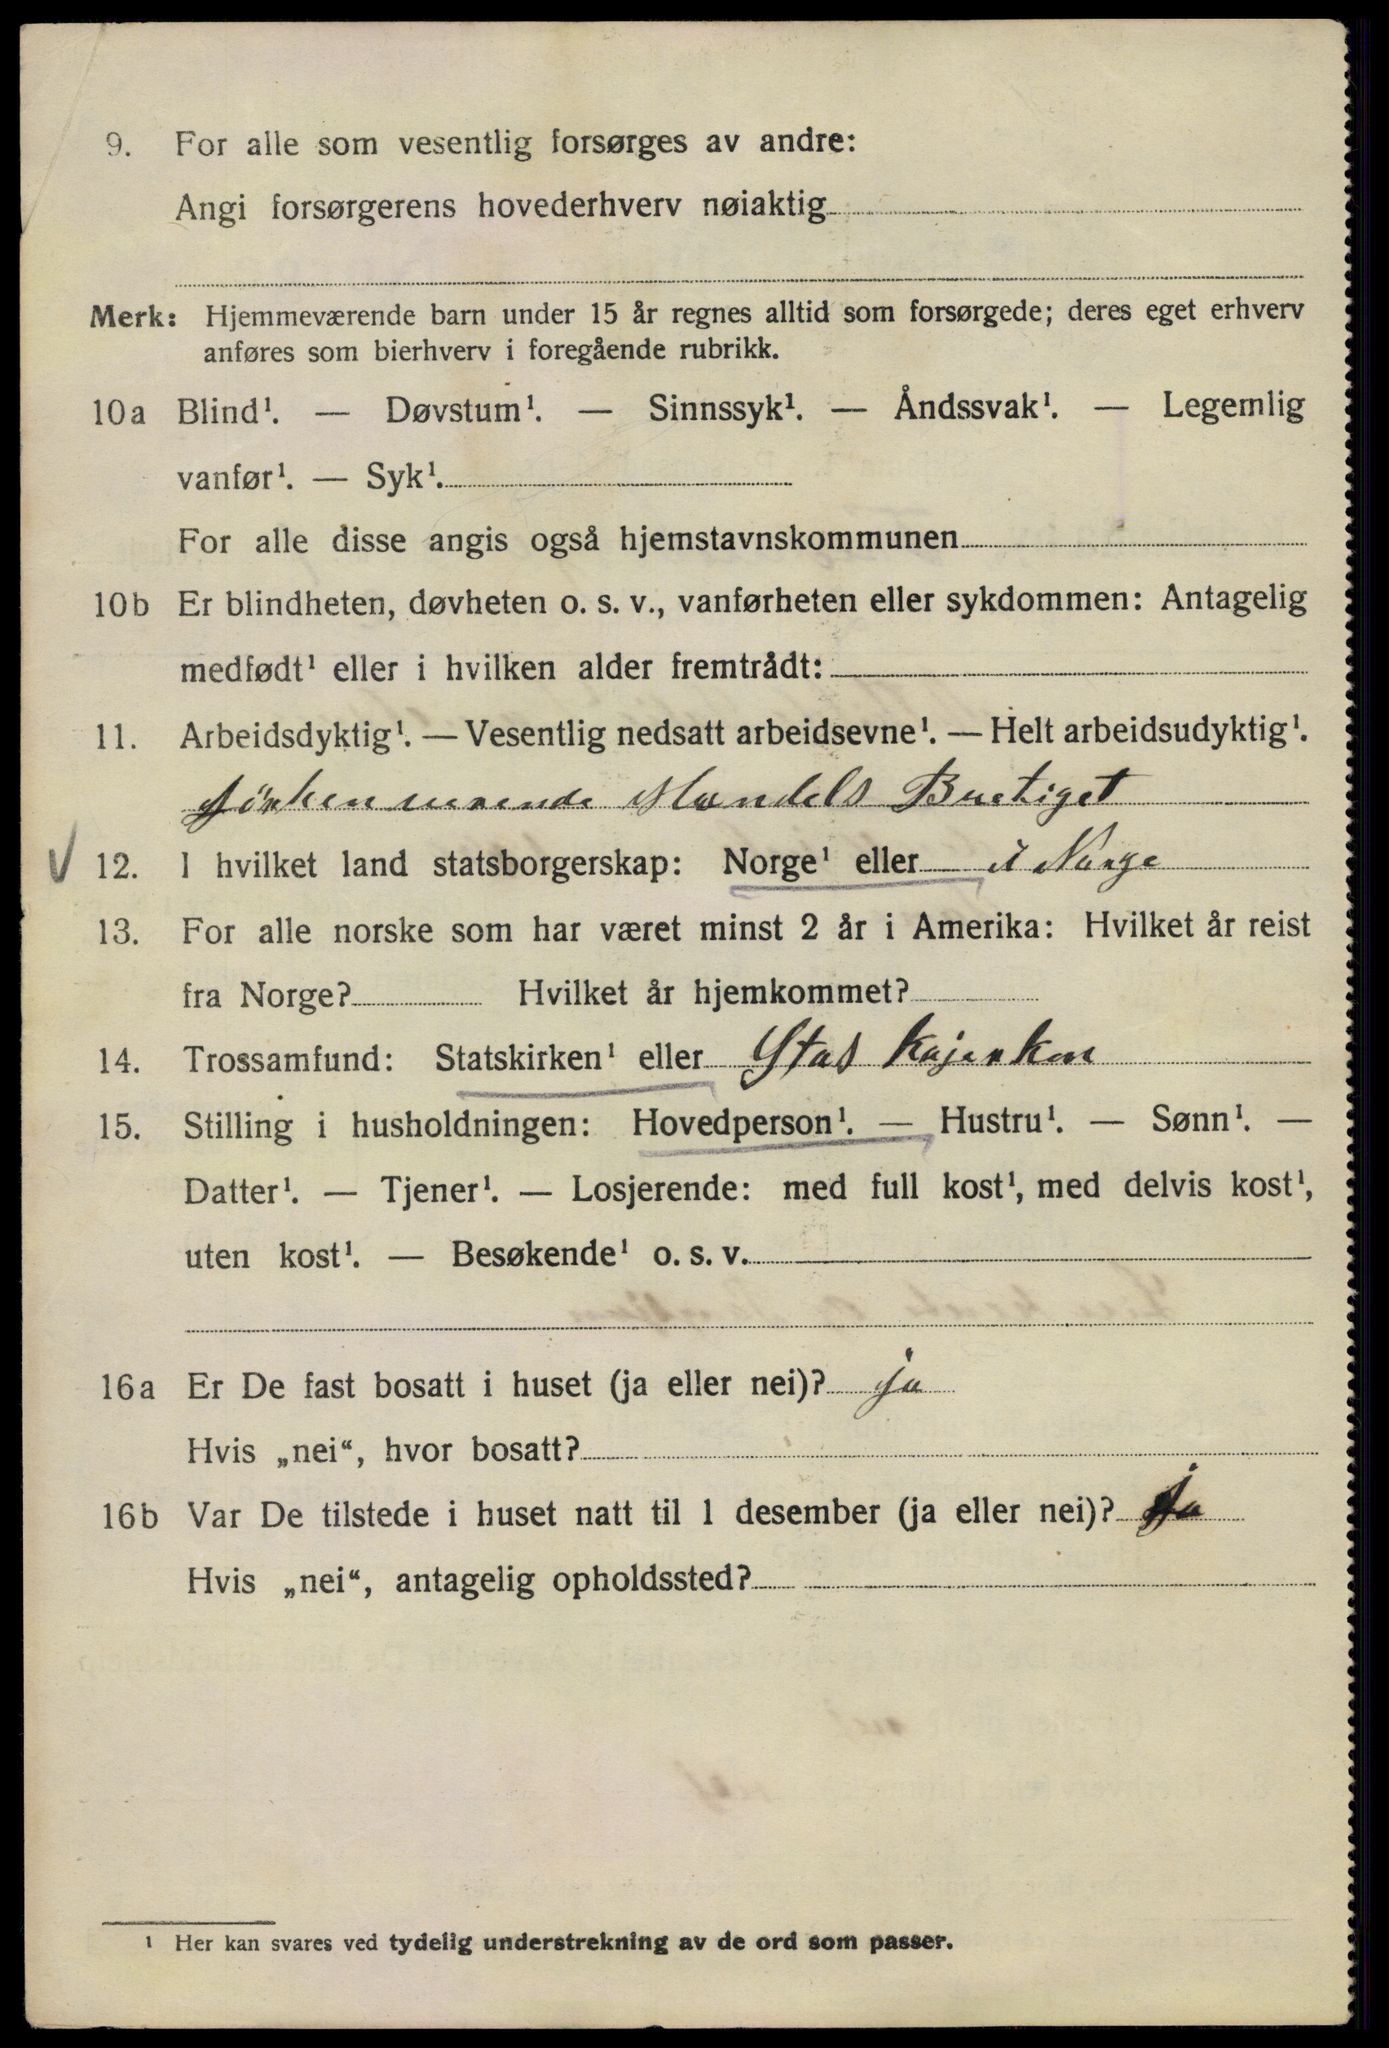 9. For alle som vesentlig forsørges av andre:
Angi forsørgerens hovederhverv nøiaktig
Merk: Hjemmeværende barn under 15 år regnes alltid som forsørgede; deres eget erhverv
anføres som bierhverv i foregående rubrikk.
10a Blind¹. — Døvstum¹. — Sinnssyk¹. — Åndssvak¹. — Legemlig
vanfør¹. — Syk¹.
For alle disse angis også hjemstavnskommunen
10b Er blindheten, døvheten o. s. v., vanførheten eller sykdommen: Antagelig
medfødt¹ eller i hvilken alder fremtrådt:
11. Arbeidsdyktig¹. — Vesentlig nedsatt arbeidsevne¹. — Helt arbeidsudyktig¹.
Handels
12. I hvilket land statsborgerskap: Norge¹ eller i Norge
13. For alle norske som har været minst 2 år i Amerika: Hvilket år reist
fra Norge? Hvilket år hjemkommet?
14. Trossamfund: Statskirken¹ eller Stas
15. Stilling i husholdningen: Hovedperson¹. — Hustru¹. — Sønn¹. —
Datter¹. — Tjener¹. — Losjerende: med full kost¹, med delvis kost¹,
uten kost¹. — Besøkende¹ o. s. v.
16a Er De fast bosatt i huset (ja eller nei)? ja
Hvis „nei“, hvor bosatt?
16b Var De tilstede i huset natt til 1 desember (ja eller nei)? ja
Hvis „nei“, antagelig opholdssted?
¹ Her kan svares ved tydelig understrekning av de ord som passer.